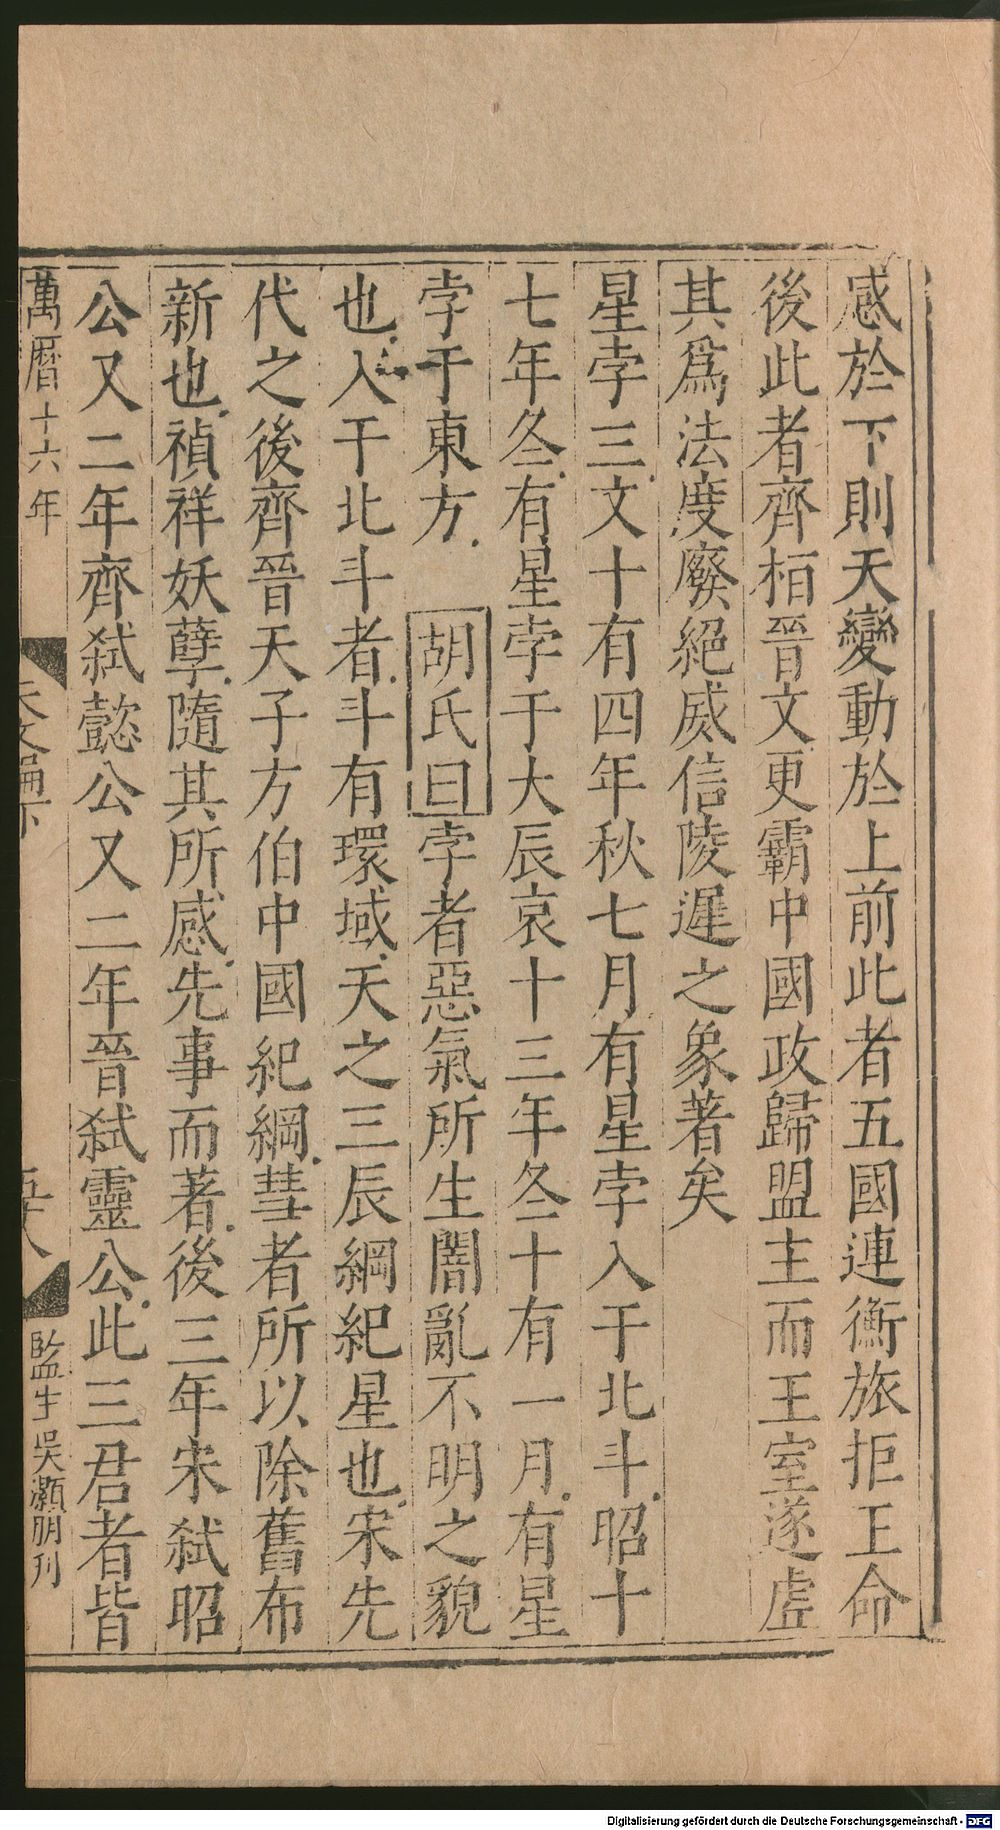 感於下則天變動於上前此者五國連衡旅拒王命
後此者齊桓晉文更霸中國政歸盟主而王室遂虛
其爲法度廢絕威信陵遲之象著矣
星孛三文十有四年秋七月有星孛入于北斗昭十
七年冬有星孛于大辰哀十三年冬十有一月有星
孛于東方 胡氏曰孛者惡氣所生闇亂不明之貌
也入于北斗者斗有環域天之三辰綱紀星也宋先
代之後齊晉天子方伯中國紀綱彗者所以除舊布
新也禎祥妖孽隨其所感先事而著後三年宋弒昭
公又二年齊弒懿公又二年晉弒靈公此三君者皆
萬曆十六年 天文扁下 五十八 監生吳灝朋刊
Digitalisierung gefördert durch die Deutsche Forschungsgemeinschaft - DFG